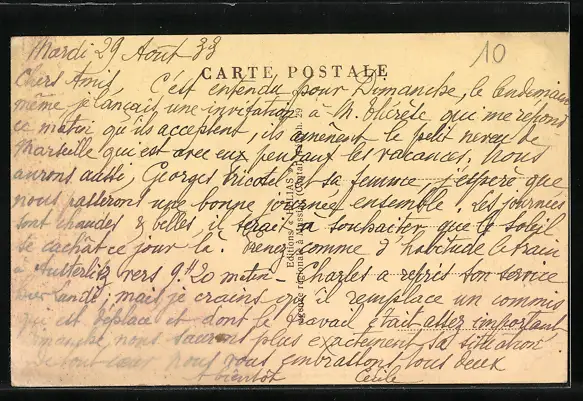 Mardi 29 Août 33
10
CARTE POSTALE
Chers Amis, C'est entendu pour Dimanche, le lendemain
même je lançais une invitation à M. Thérèse, qui me répond
ce matin qu'ils acceptent, ils amènent le petit neveu de
Marseille qui est avec eux pendant les vacances. Nous
aurons aussi, Georges et sa femme, j'espère que
nous passerons une bonne journée ensemble. Les journées
sont chaudes & belles il serait à souhaiter que le soleil
se cachât ce jour là. Venez comme d'habitude le train
à Austerlitz vers 9h20 matin - Charles a repris son service
hier Lundi, mais je crains qu'il remplace un commis
qui est déplacé et dont le travail était assez important
Dimanche, nous saurons plus exactement sa situation
nous vous embrassons tous deux
à bientôt Cécile
Editions